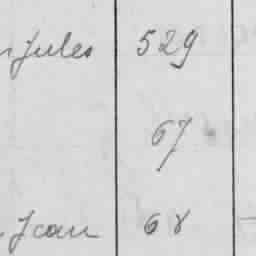 Jules 529
67
Jean 68